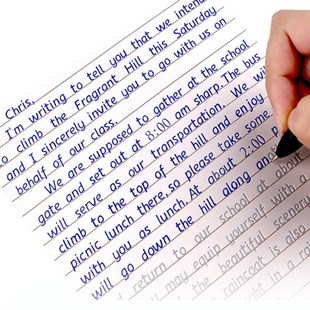 Chris,
I'm writing to tell you that we intend
o climb the Fragrant Hill this Saturday
and I sincerely invite you to go with us on
behalf of our class.
We are supposed to gather at the school
gate and set out at 8:00 am sharp. The bus
will serve as our transportation. We wi
climb to the top of the hill and enjoy
picnic lunch there, so please take some
with you as lunch. At about 2:00 p
will go down the hill along and
d return to our school at about
may equip yourself with a
the beautiful scenery
raincoat is also
ght in a